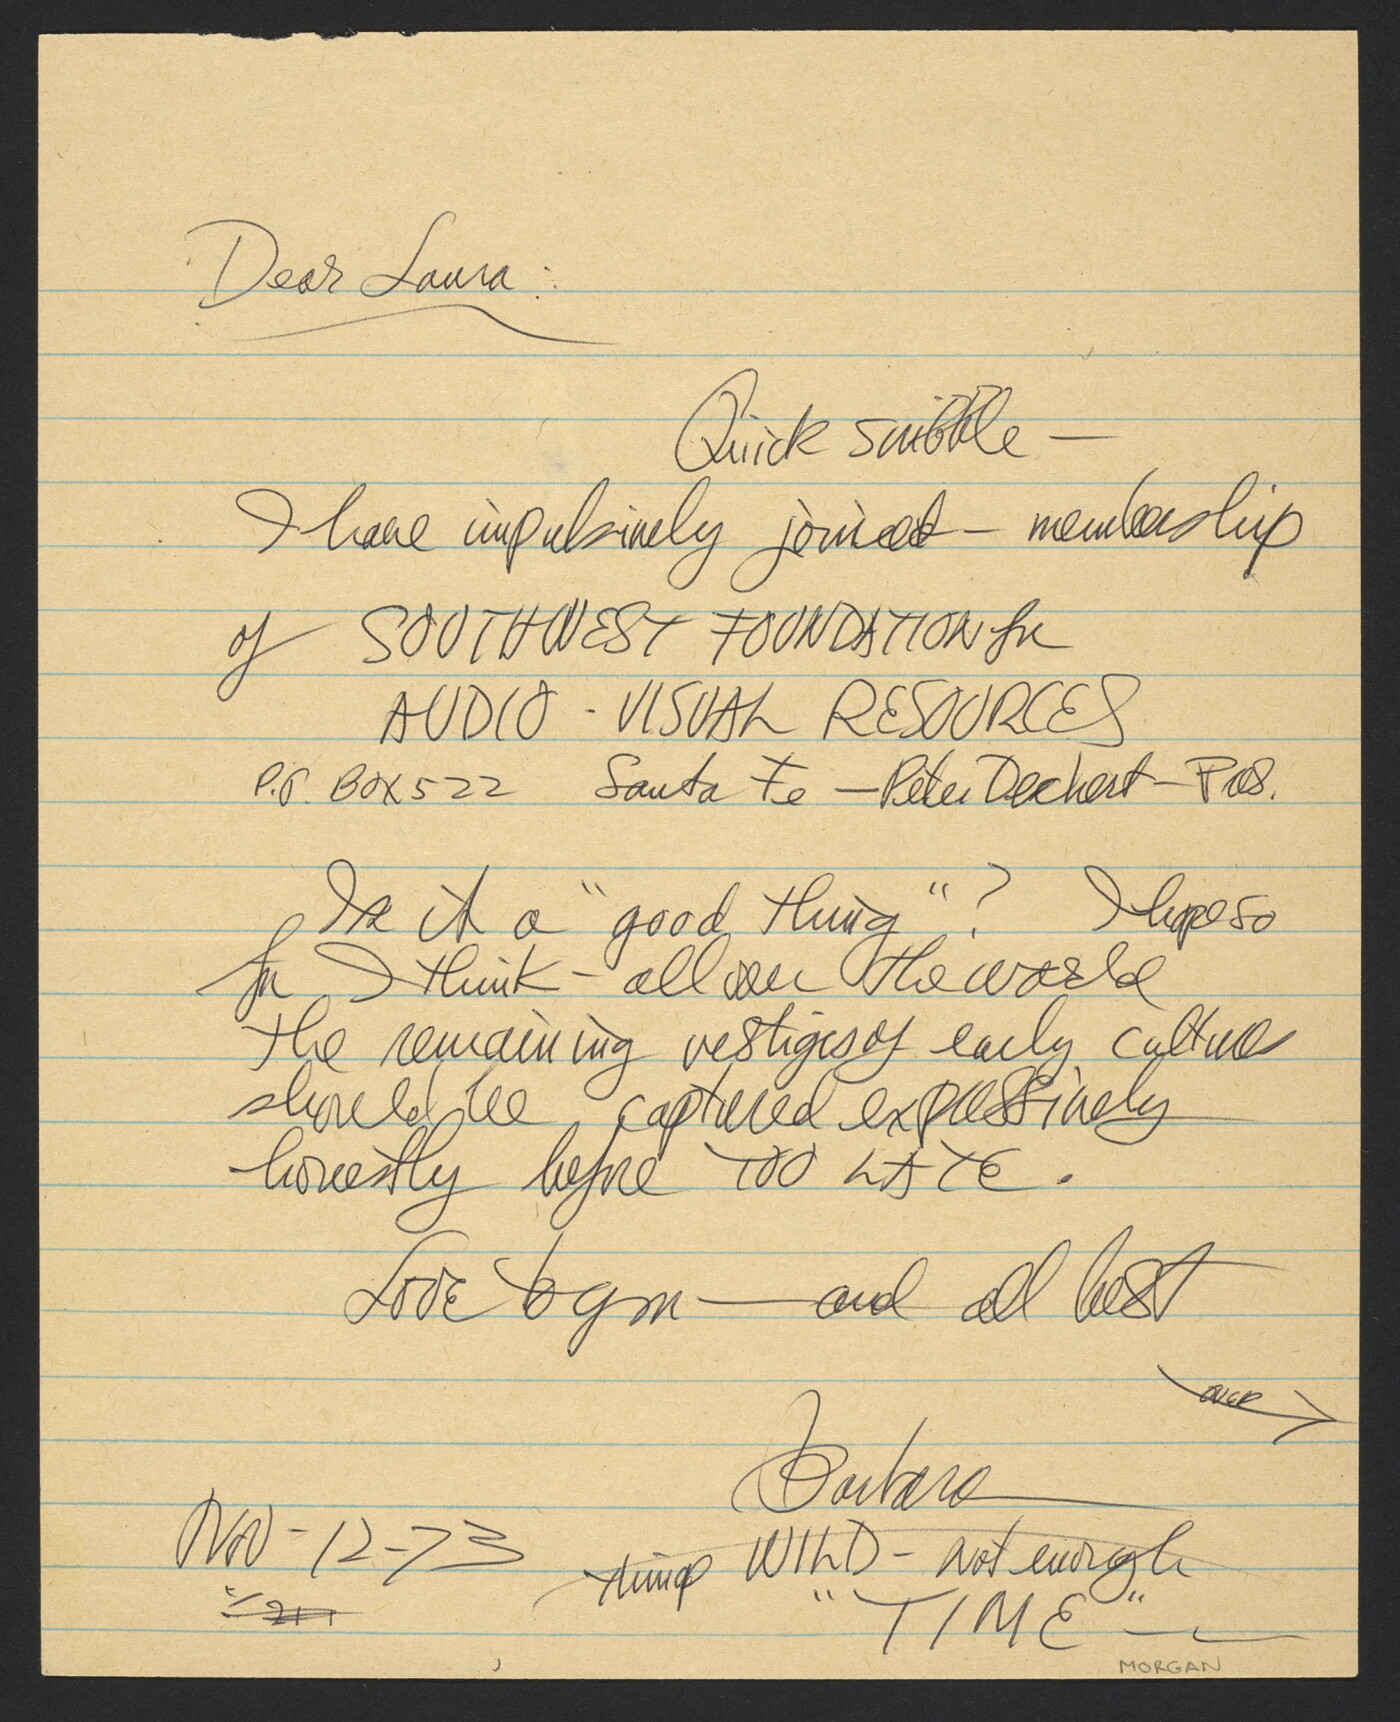 Dear Laura:
Quick scribble —
I have impulsively joined — membership
of SOUTHWEST FOUNDATION for
AUDIO - VISUAL RESOURCES
P.O. BOX 522 Santa Fe — Peter Dechert — Pres.
Is it a "good thing"? I hope so
for I think — all over the world
the remaining vestiges of early cultures
should be captured expressively
honestly before TOO LATE.
Love to you — and all best
over
Barbara
Nov - 12 - 73
things WILD - not enough
"TIME" —
MORGAN